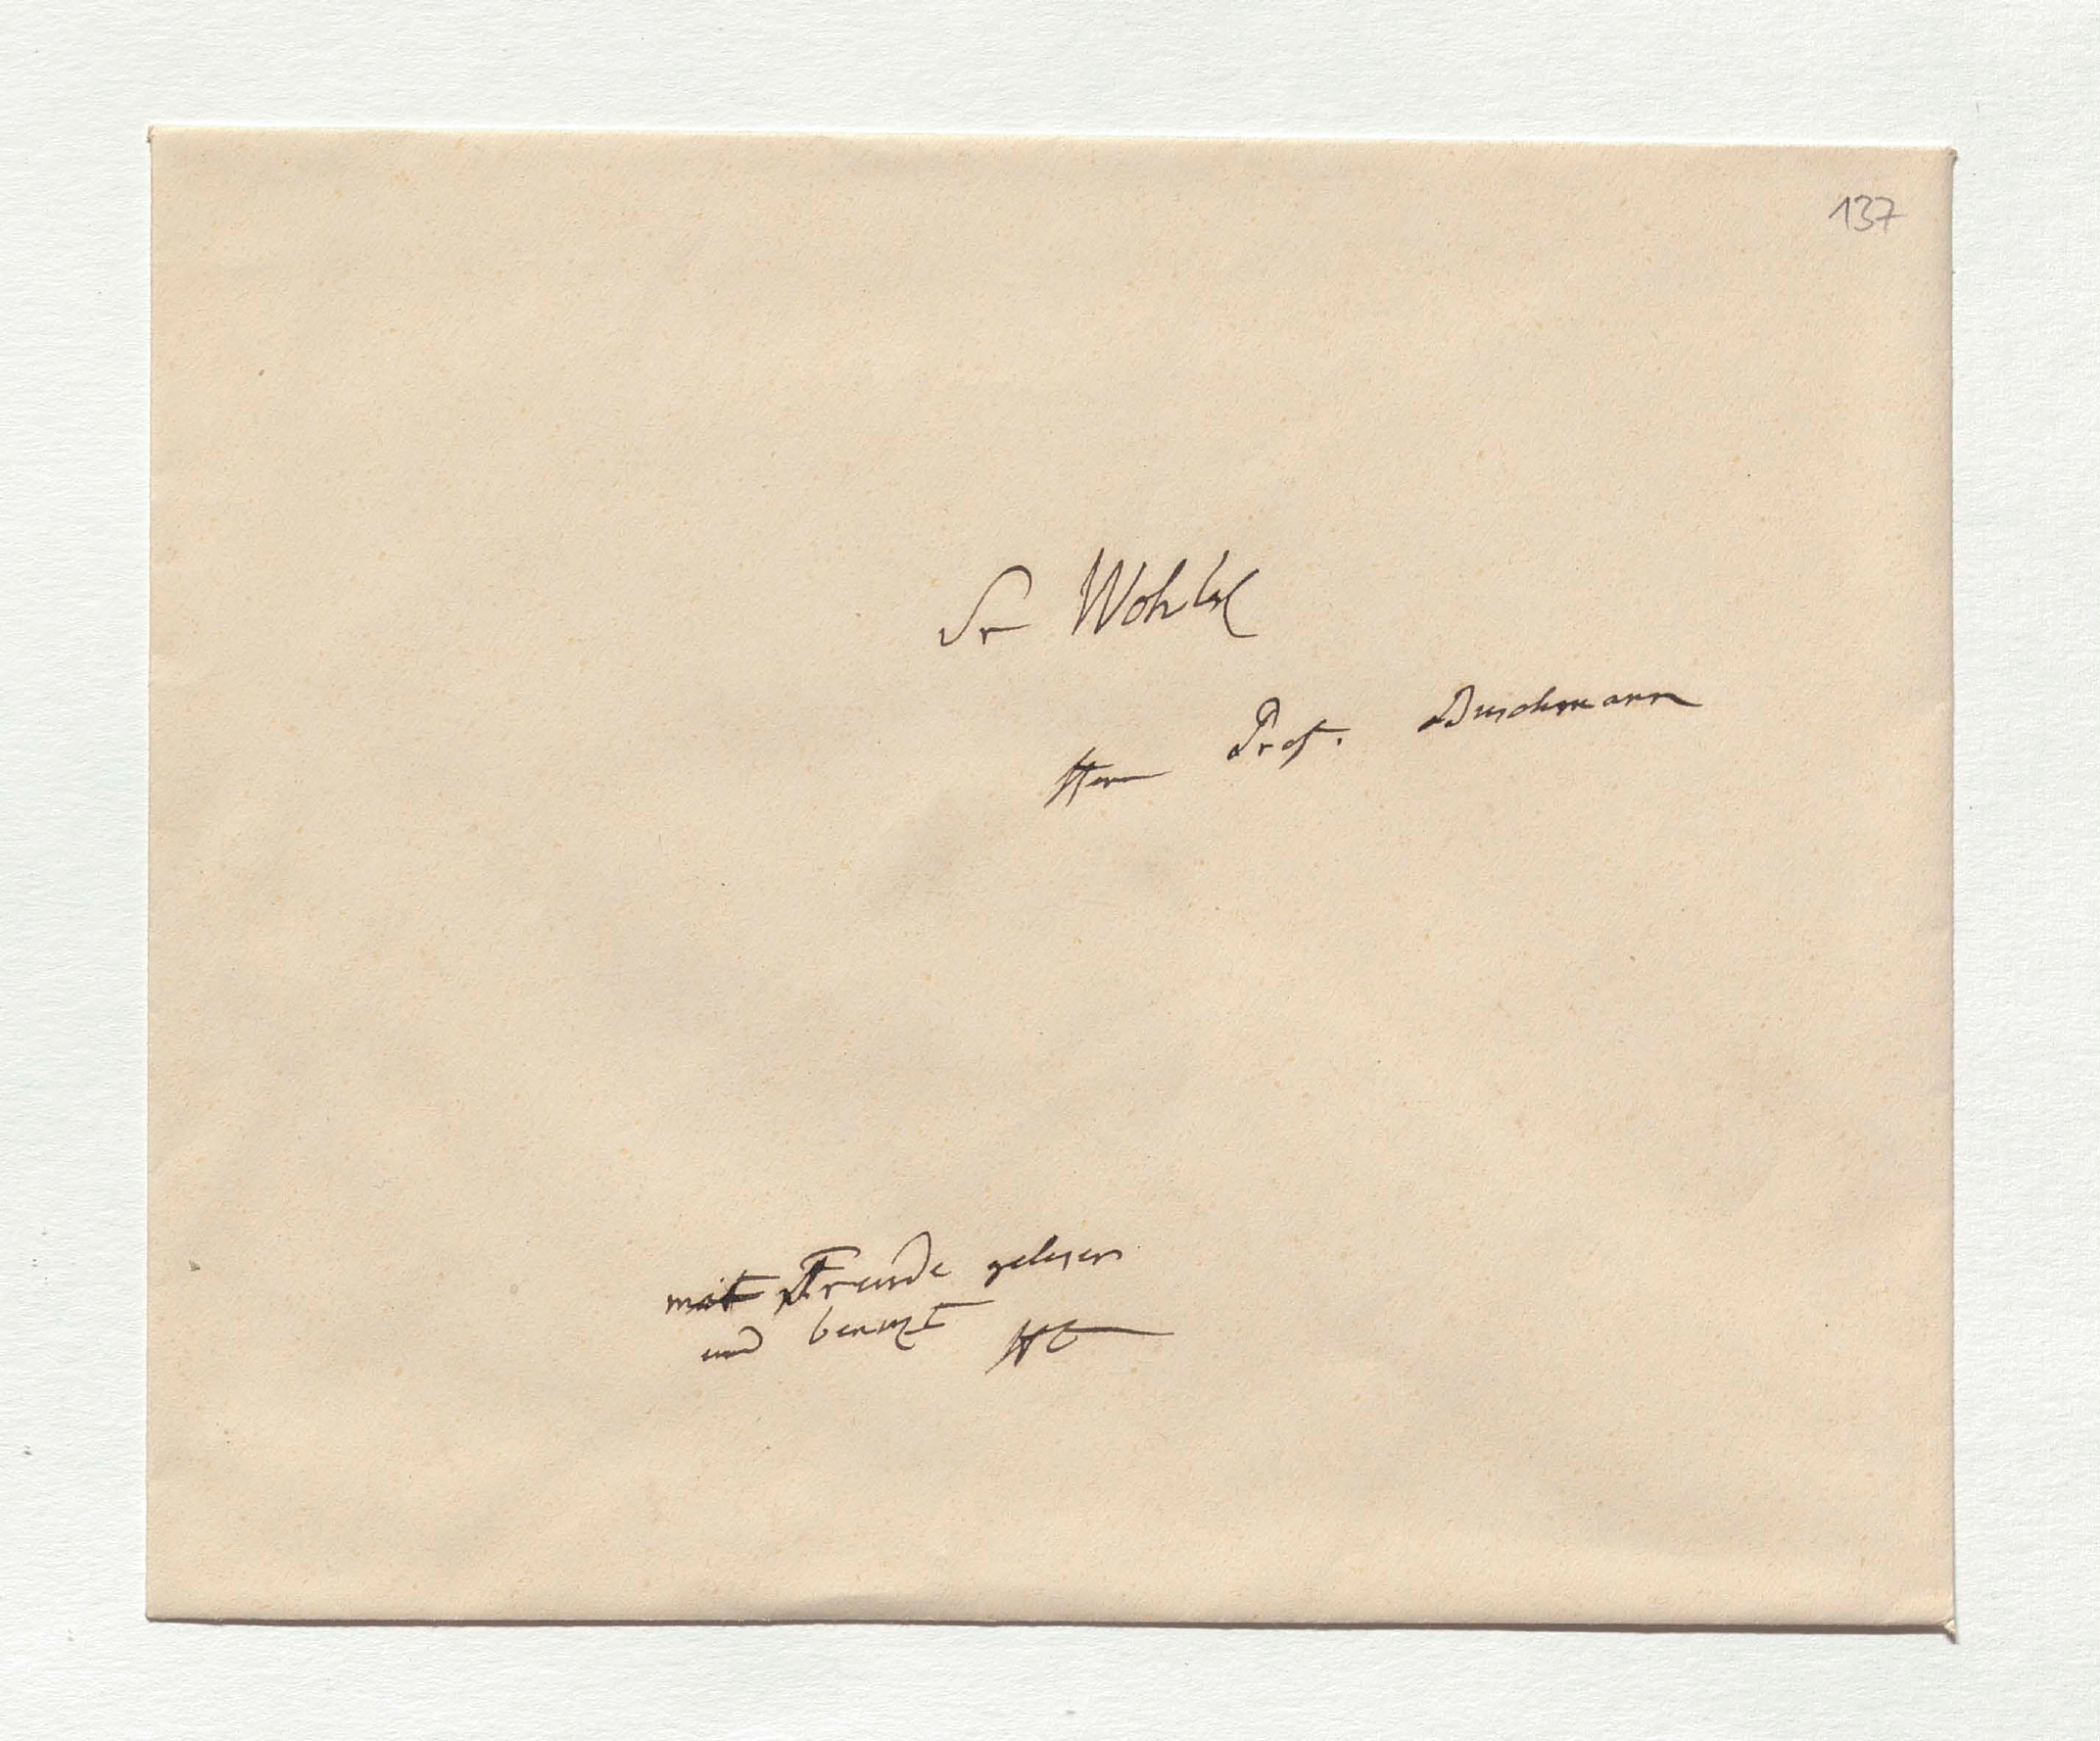 137
Sr Wohlg
Herrn Prof. Buschmann
mit Freude gelesen
und benuzt